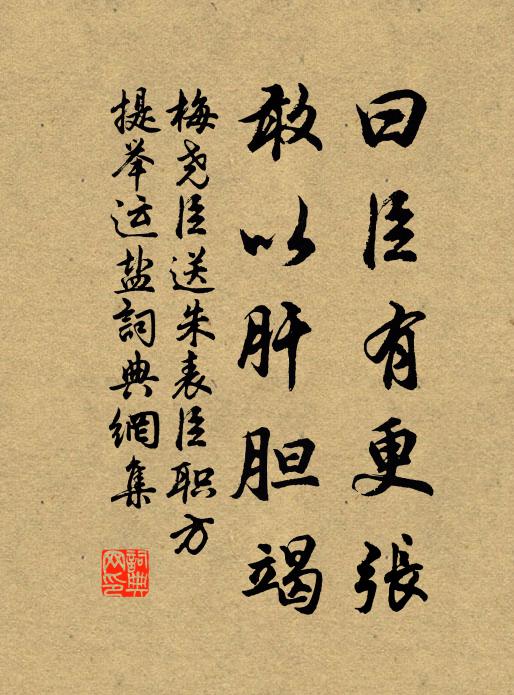 曰臣有更張
敢以肝胆竭
梅尧臣送朱表臣职方
提举运盐詞典網集
詞典网印